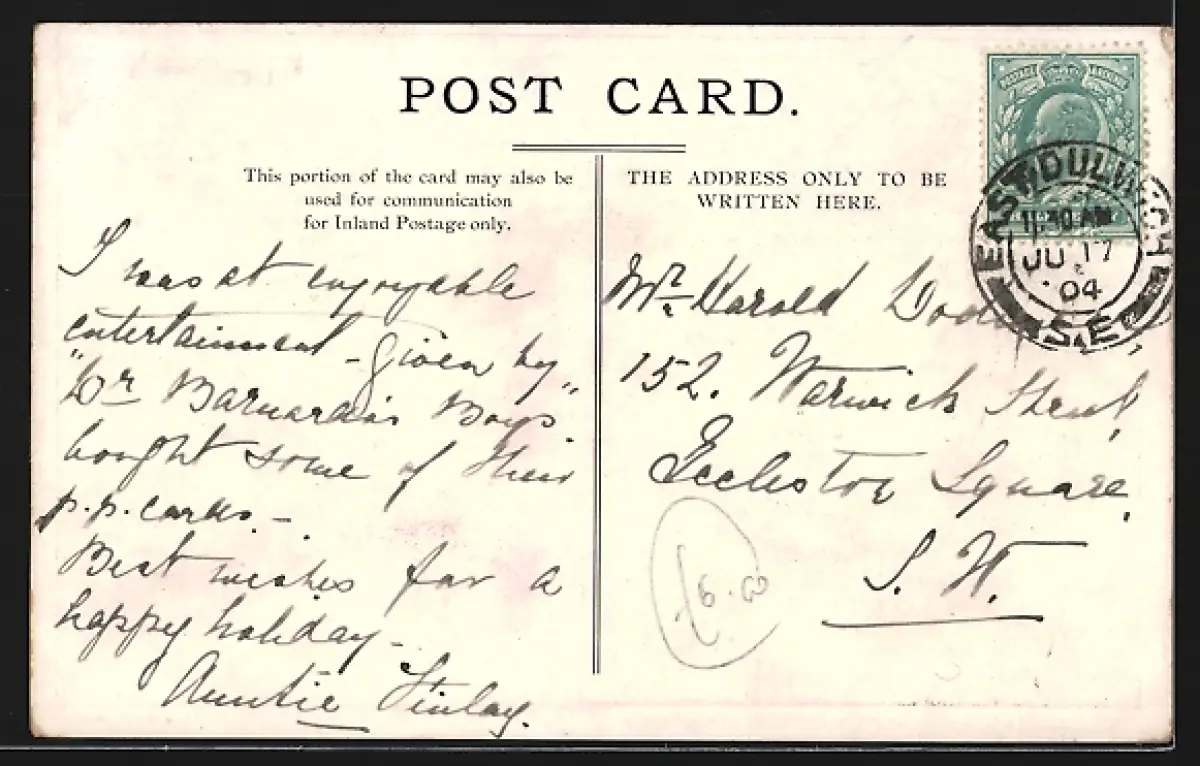 POST CARD.
This portion of the card may also be
used for communication
for Inland Postage only.
THE ADDRESS ONLY TO BE
WRITTEN HERE.
I was at enjoyable
entertainment - given by
"Dr Barnardo's Boys"
bought some of their
p.p. cards. -
Best wishes for a
happy holiday -
Auntie Finlay.
Mr. Harold
152. Warwick Street,
Eccleston Square,
S. W.
EAST DULWICH
11.30 AM
JU 17
04
S.E
£6.00